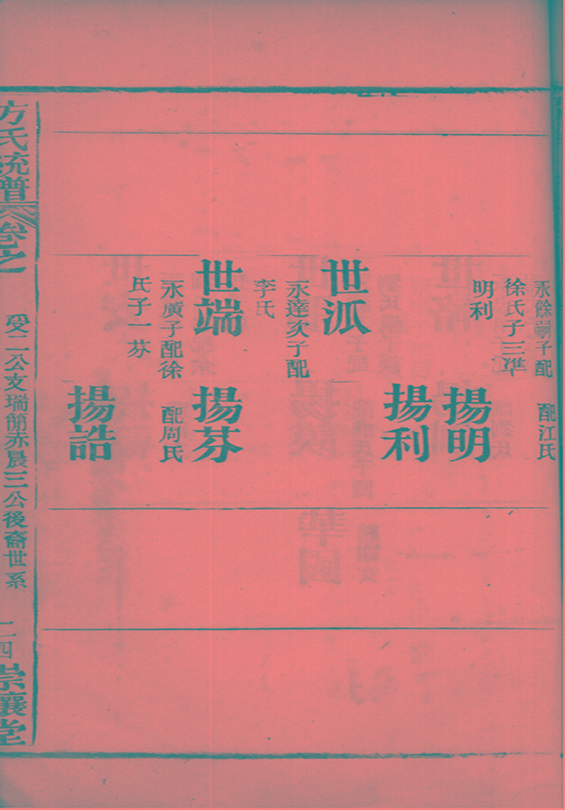 永餘嗣子配
徐氏子三準
明利
配江氏
揚明
揚利
世派
永達次子配
李氏
世端
永廣子配徐
氏子一芬
揚芬
配周氏
揚誥
方氏統譜
卷之
受二公支瑞簡赤晨三公後裔世系
二四
崇讓堂